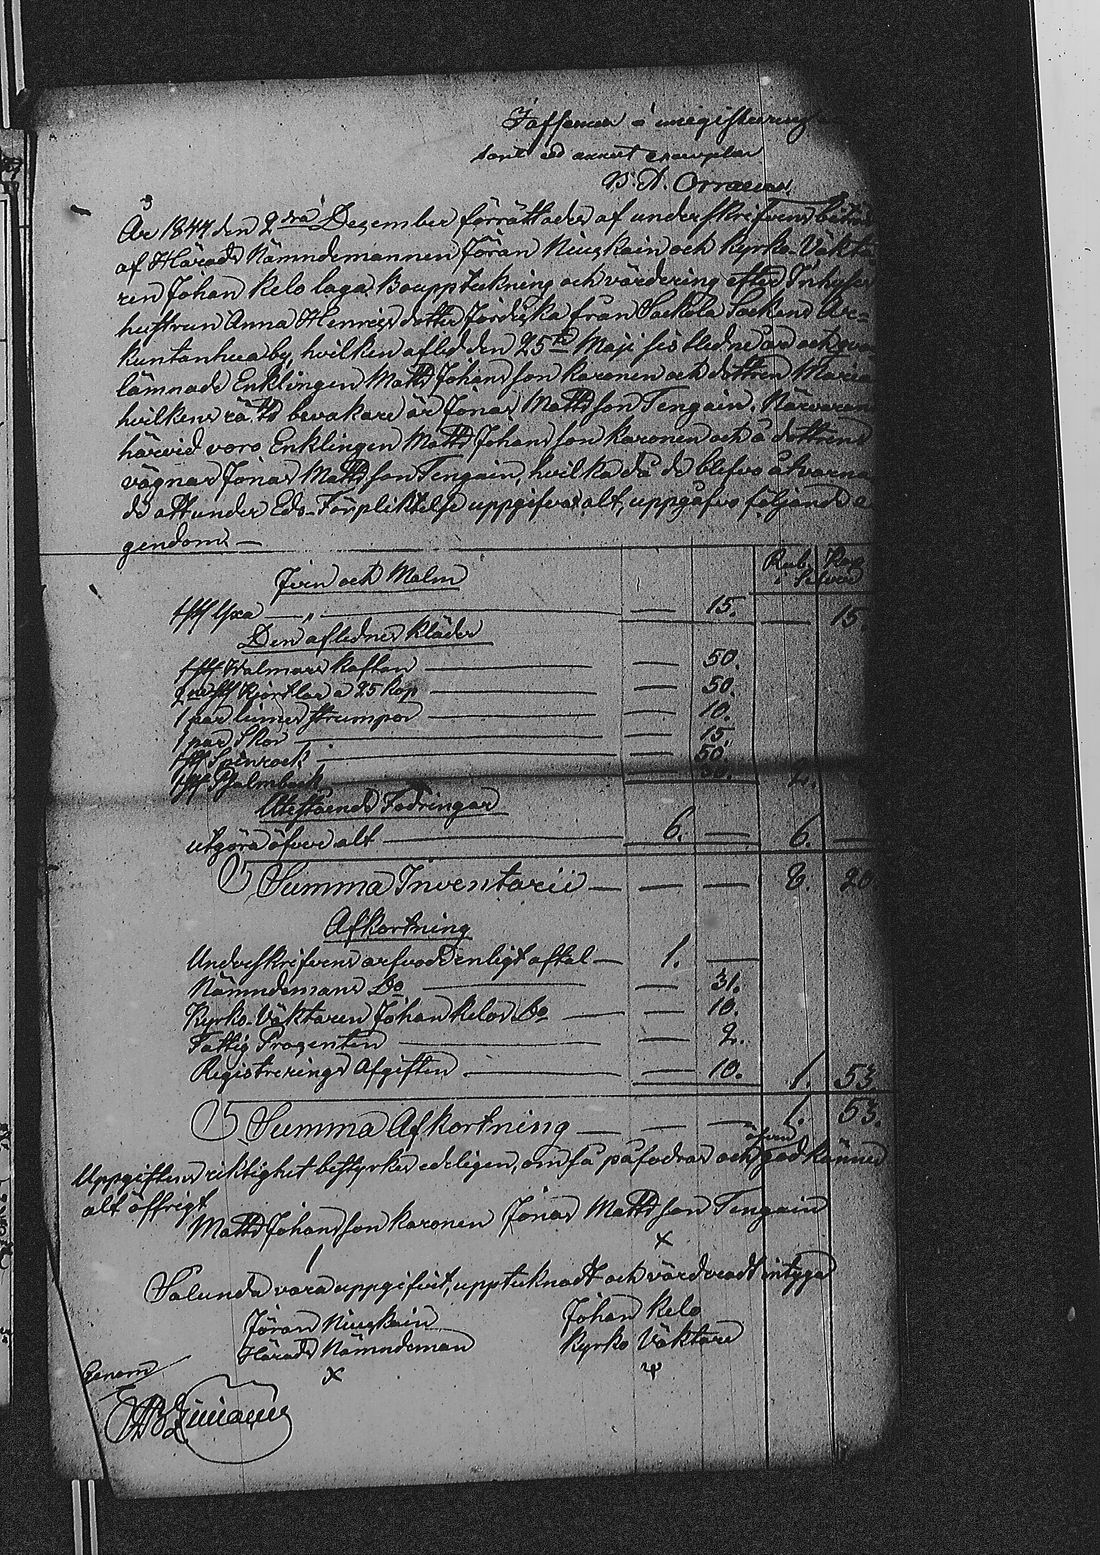 3
År 1844 den 2dra December förrättades af underskrifven
af Härads Nämndemannen Jöran Niuskain och Kyrko-Väkta
ren Johan Kelo laga Bouppteckning och värdering efter Inhyses
hustrun Anna Henricsdotter från Sackola Socken
by, hvilken afled den 25te Maji sistledne år och
lämnade Enklingen Matts Johansson Karonen och dottren Maria
hvilkens rätts bevakare är Jonas Mattsson Tengain. Närvarande
härvid voro Enklingen Matts Johansson Karonen och å dottrens
vägnar Jonas Mattsson Tengain, hvilka då de blefvo åtvarna
de att under Eds-Förpliktelse uppgifva alt, uppgåfvo följande e
gendom. —
Rub. Kop.
i Silfver
Jern och Malm
1 st Yxa — " — 15. — 15.
Den aflednes kläder
1 st Walmars kaftan — 50.
2 st Kjortlar a 25 kop — 50.
1 par linnes strumpor — 10.
1 par Skor — 15
1 st Spinrock — 50.
1 st Psalmbock — 30. 2.
Utestående Fodringar
utgöra öfver alt — 6. — 6. —
Summa Inventarii — — — 8. 20.
Afkortning
Underskrifvens arfvode enligt aftal — 1. —
Nämndemans Do — 31.
Kyrko-Väktaren Johan Kelos Do — 10.
Fattig Procenten — 2.
Registrerings Afgiften — 10. 1. 53
Summa Afkortning — — — 1. 53.
Uppgiftens riktighet bestyrkes edeligen, om så påfodras och äfven godkännes
alt öffrigt
Matts Johansson Karonen Jonas Mattsson Tengain
x
Sålunda vara uppgifvit, upptecknadt och värderadt intyga
Jöran Niuskain Johan Kelo
Härads Nämndeman Kyrko Väktare
x
Genom